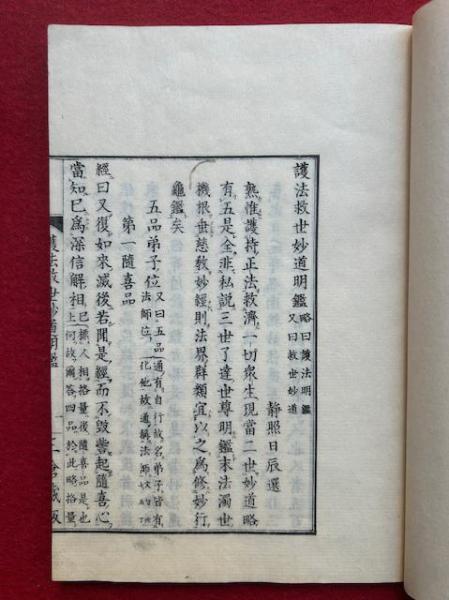 護法救世妙道明鑑 略曰護法明鑑 又曰救世妙道
靜照日辰選
熟惟護持正法救濟一切衆生現當二世妙道略
有五是全非私說三世了達世尊明鑑末法濁世
機根垂慈教妙經則法界群類宜以之爲修妙行
龜鑑矣
五品弟子位 又曰五品弟子皆有 法師位
第一隨喜品
經曰又復如來滅後若聞是經而不毀訾起隨喜心
當知已爲深信解相
護法救世妙道明鑑